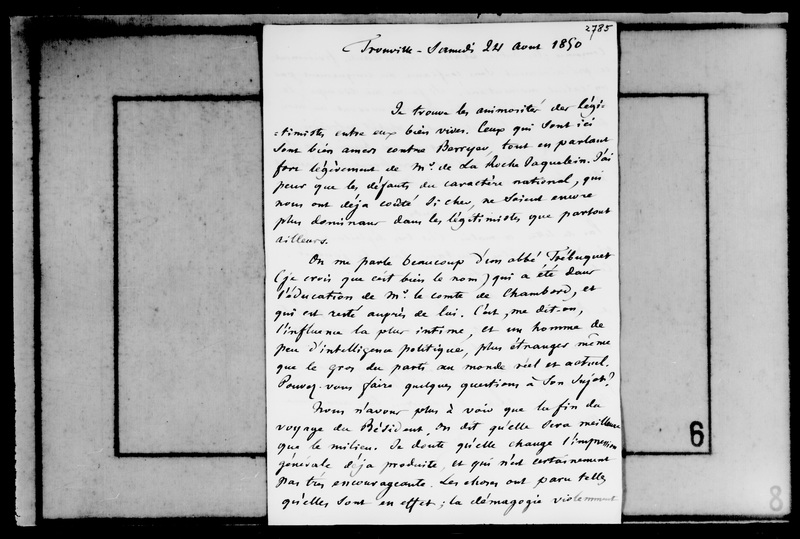 2785
Trouville - Samedi 24 Aout 1850
Je trouve les animosités des légi-
-timistes entre eux bien vives. Ceux qui sont ici
sont bien amers contre Berryer, tout en parlant
fort légèrement de Mr. de La Roche Jaquelein. J'ai
peur que les défauts du caractère national, qui
nous ont déja coûté si cher, ne soient encore
plus dominans dans les légitimistes que partout
ailleurs.
On me parle beaucoup d'un abbé Trébuquet
(je crois que c'est bien le nom) qui a été dans
l'éducation de Mr. le comte de Chambord, et
qui est resté auprès de lui. C'est, me dit-on,
l'influence la plus intime, et un homme de
peu d'intelligence politique, plus étranger même
que le gros du parti au monde réel et actuel.
Pouvez-vous faire quelques questions à son sujet?
Nous n'avons plus à voir que la fin du
voyage du Président. On dit qu'elle sera meilleure
que le milieu. Je doute qu'elle change l'impression
générale déja produite, et qui n'est certainement
pas très encourageante. Les choses ont paru telles
qu'elles sont en effet; la démagogie violemment
6
8